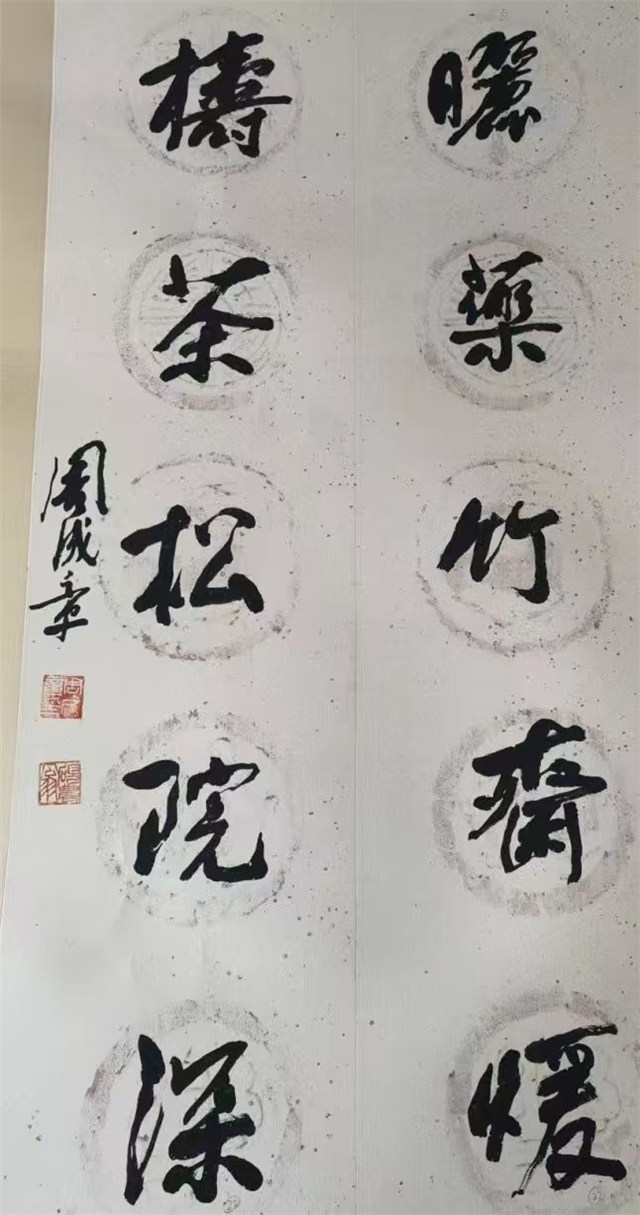 曬藥竹齋暖
檮茶松院深
周成章